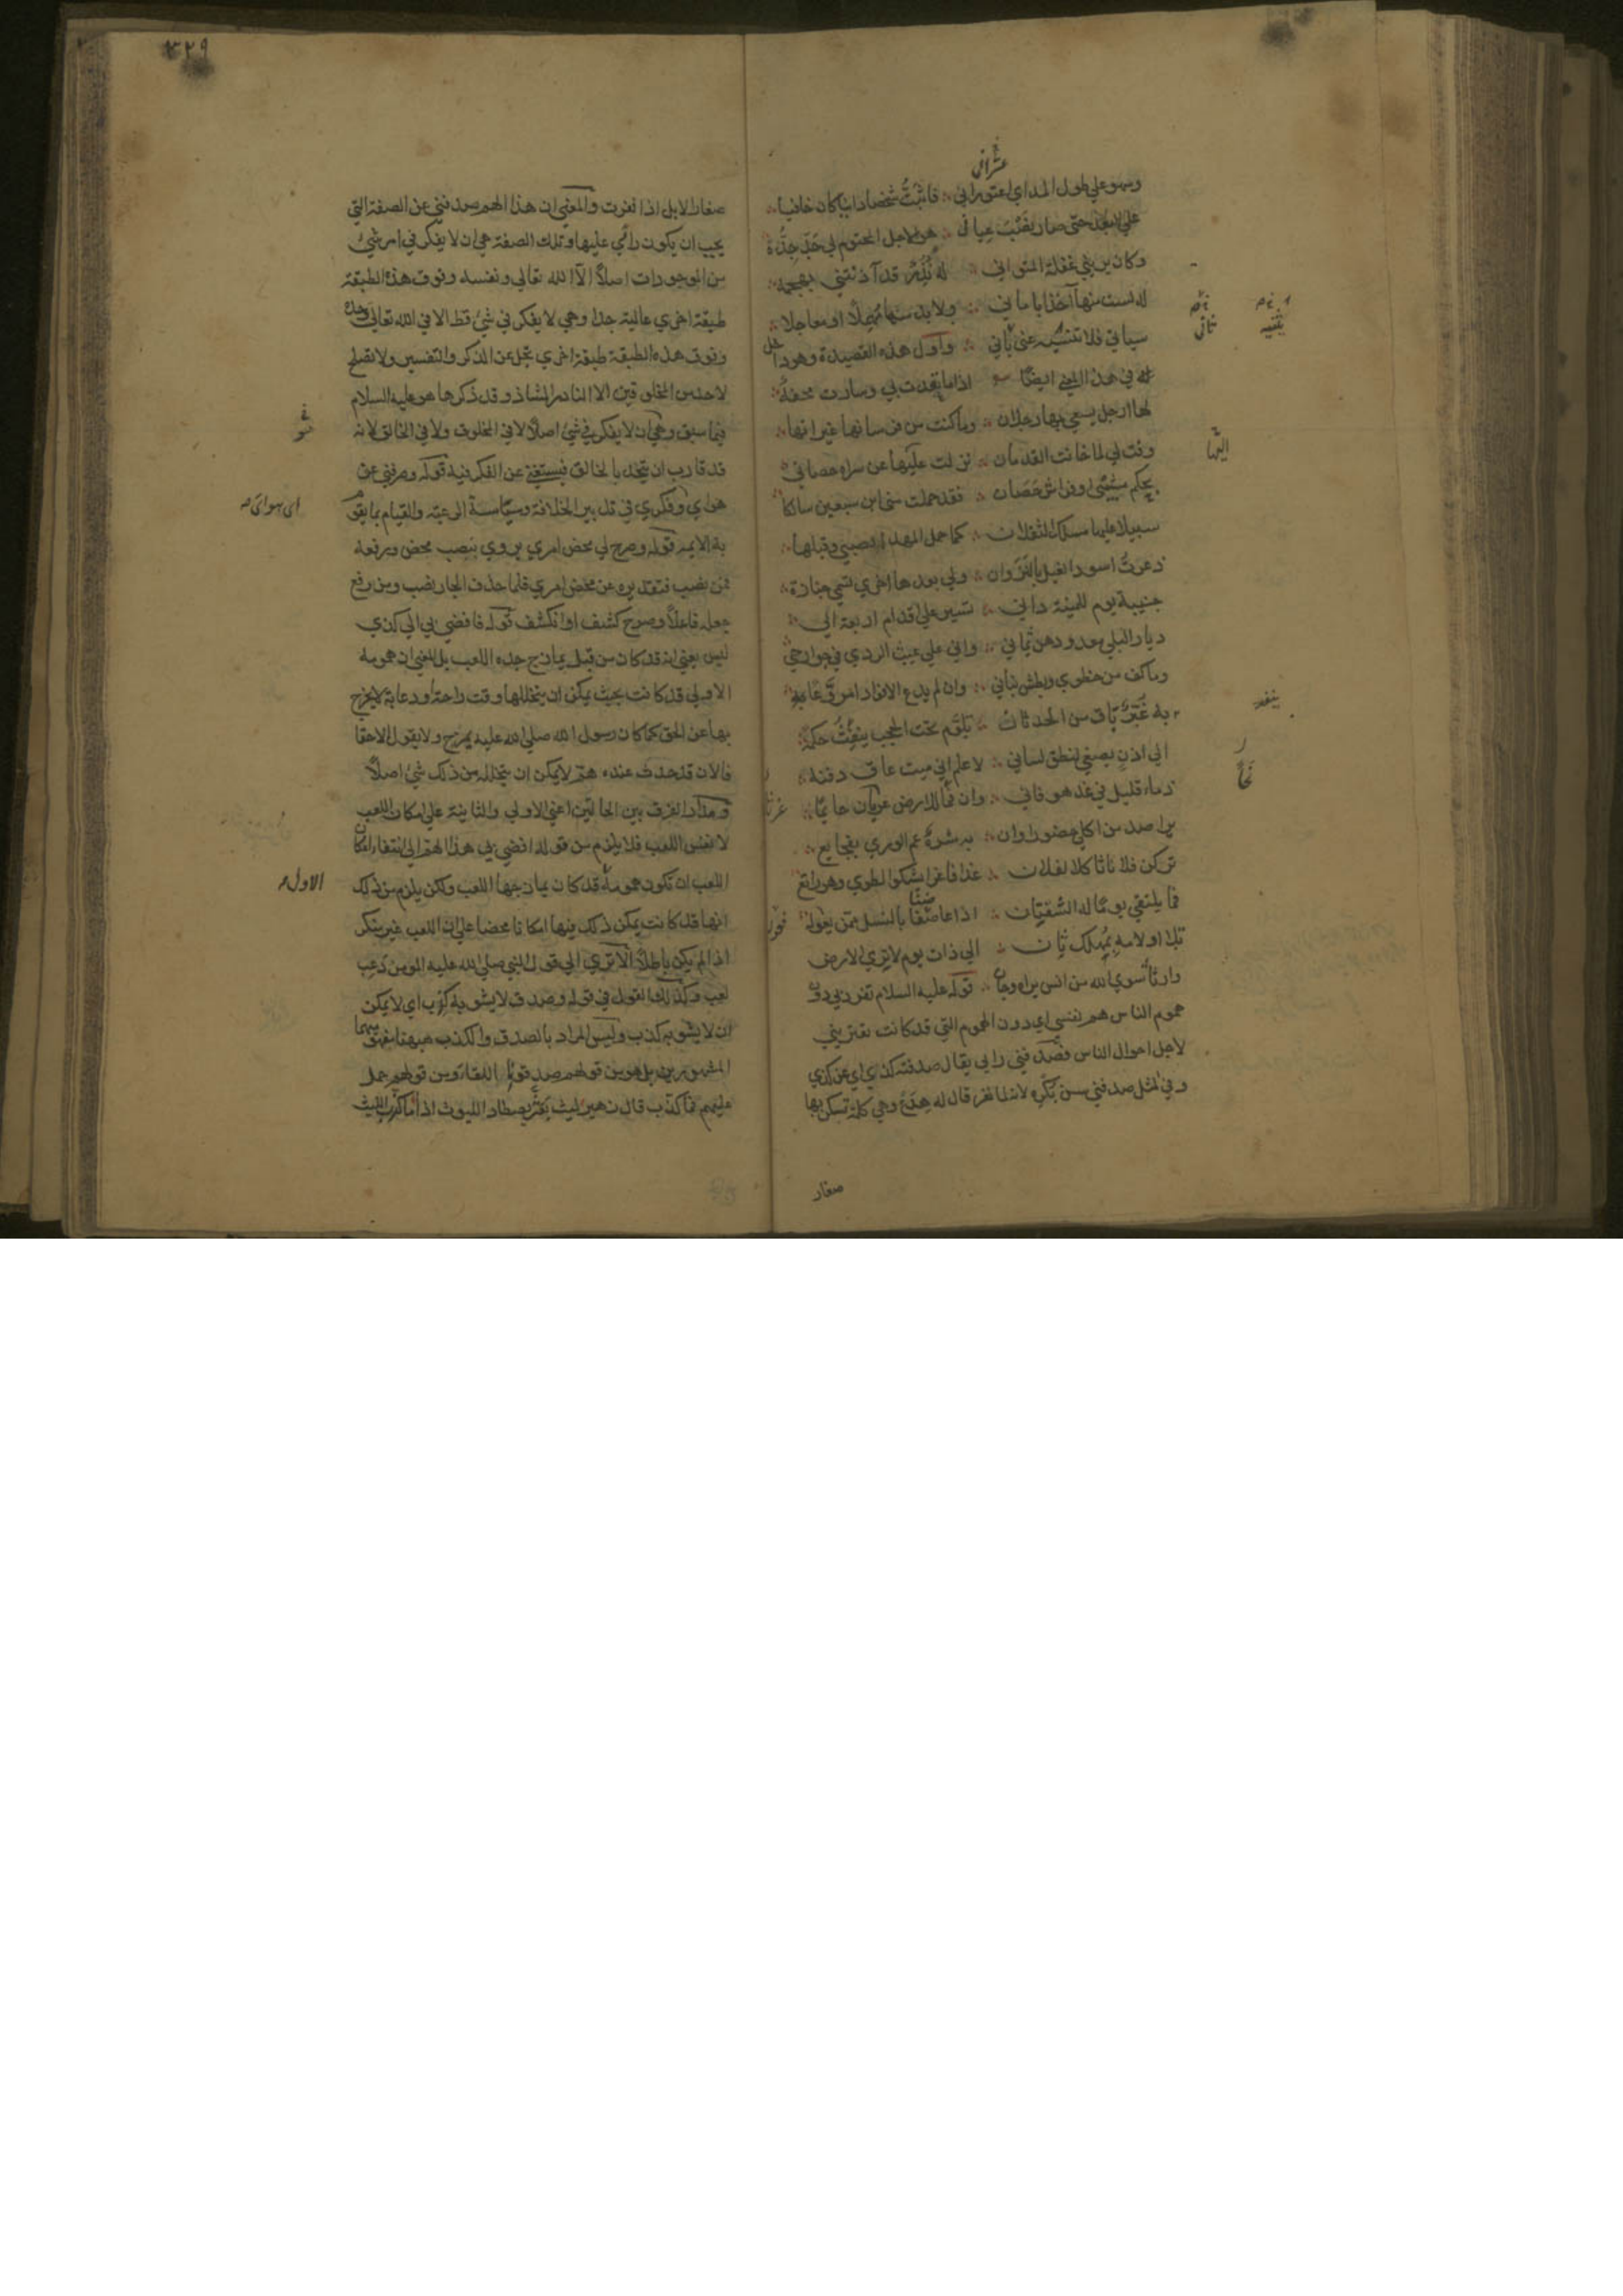 عشراتى
وسهو على طول المدا اعتورانى فاثبت شخصا دانيا كان خافيا
على البعد حتى صار نصب عيانى هو الاجل المحتوم لي جد جده
وكان يرينى غفلة المتوانى له نذر قد آذنتنى بهجمة
له لست منها آخذا بامانى ولا بد منها مهملا او معاجلا
سياتى فلا يثنيه عنى ثانى واول هذه القصيدة وهو داخل
له في هذا المعنى ايضا اذا ما تعدت بي وسارت محفة
لها ارجل يسعى بها رجلان وما كنت من فرسانها غير انها
وفت لي لما خانت القدمان نزلت عليها عن سراة حصانى
بحكم مشيب او فراش حصان فقد حملت منى ابن سبعين سالكا
سبيلا عليها مسلك الثقلان كما حمل المهد الصبي وقبلها
ذعرت اسود الغيل بالنزوان ولى بعدها اخرى تسمى جنازة
جنيبة يوم للمنية دانى تسير على اقدام اربعة الى
ديار البلى معدودهن ثمانى وانى على عيث الردى في جوارحى
وما كف من خطوى وبطش بنانى وان لم يدع الا فؤادا مروعا
به غير باق من الحدثان تلوم تحت الحجب ينفث حكمة
الى اذن يصغى لنطق لسانى لاعلم انى ميت عاق دفنه
ذماء قليل في غد هو فانى وان فما للارض غرثان حائما
يراصد من اكلى حضور اوان به شره عم الورى بفجايع
تركن فلانا ثاكلا لفلان غدا فاغرا يشكو الطوى وهو راتع
فما يلتقى يوما له الشفتان اذا عاضنا بالنسل ممن يعوله
تلا اولا منه بمهلك ثان الى ذات يوم لا ترى الارض
وارثا سوى الله من انس يراه وجان قوله عليه السلام تفرد بي دون
هموم الناس هم نفسى اى دون الهموم التى قد كانت تعترينى
لاجل احوال الناس فصدفنى رايى يقال صدفته كذا اى عن كذى
وفي المثل صدقنى سن بكره لانه لما نفر قال له هدع وهى كلمة تسكن بها
صغار
٣٢٩
صغار الابل اذا نفرت والمعنى ان هذا الهم صدفنى عن الصفة التى
يجب ان يكون رائى عليها وتلك الصفة هي ان لا يفكر في امر شئ
من الموجودات اصلا الا الله تعالى ونفسه وفوق هذه الطبقة
طبقة اخرى عالية جدا وهي لا يفكر في شئ قط الا في الله تعالى وحده
وفوق هذه الطبقة طبقة اخرى تجل عن الذكر والتفسير ولا تصلح
لاحد من المخلوقين الا النادر الشاذ وقد ذكرها هو عليه السلام
فيما سبق وهى ان لا يفكر في شئ اصلا لا في المخلوق ولا في الخالق لانه
قد قارب ان يتحد بالخالق فيستغنى عن الفكر فيه قوله وصرفنى عن
هواي اى هواى وفكرى في تدبير الخلافة وسياسة الرعية والقيام بما يقوم
به الايمه قوله وصرح لي محض امري يروى بنصب محض ورفعه
فمن نصب فتقديره عن محض امري فلما حذف الجار نصب ومن رفع
جعله فاعلا وصرح كشف او انكشف قوله فافضى بي الى كذى
ليس يعنى انه قد كان من قبل يمازج جده اللعب بل المعنى ان همومه
الاولى قد كانت بحيث يمكن ان يتخللها وقت راحة او دعابة لا يخرج
بها عن الحق كما كان رسول الله صلى الله عليه يمزح ولا يقول الا حقا
فالان قد حدث عنده هم لا يمكن ان يتخلله من ذلك شئ اصلا
ومدار الفرق بين الحالتين اعنى الاولى والثانية على امكان اللعب
لا نفس اللعب فلا يلزم من قوله افضى بي هذا الهم الى انتفاء امكان
اللعب ان تكون همومه الاول قد كان يمازجها اللعب ولكن يلزم من ذلك
انها قد كانت يمكن ذلك فيها امكانا محضا على ان اللعب غير منكر
اذا لم يكن باطلا الا ترى الى قول النبى صلى الله عليه المومن دعب
لعب وكذلك القول في قوله وصدق لا يشوبه كذب اي لا يمكن
ان لا يشوبه كذب وليس المراد بالصدق والكذب هيهنا مفهومهما
المشهورين بل هو من قولهم صدقونا اللقاء ومن قولهم حمل
عليهم فما كذب قال زهير ليث بعثر يصطاد الليوث اذا ما كذب الليث